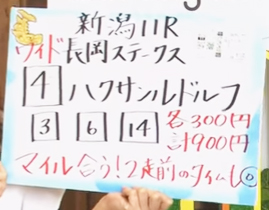 新潟11R
ワイド長岡ステークス
4 ハクサンルドルフ
3 6 14 各300円
計900円
マイル合う!2走前のタイムも◎